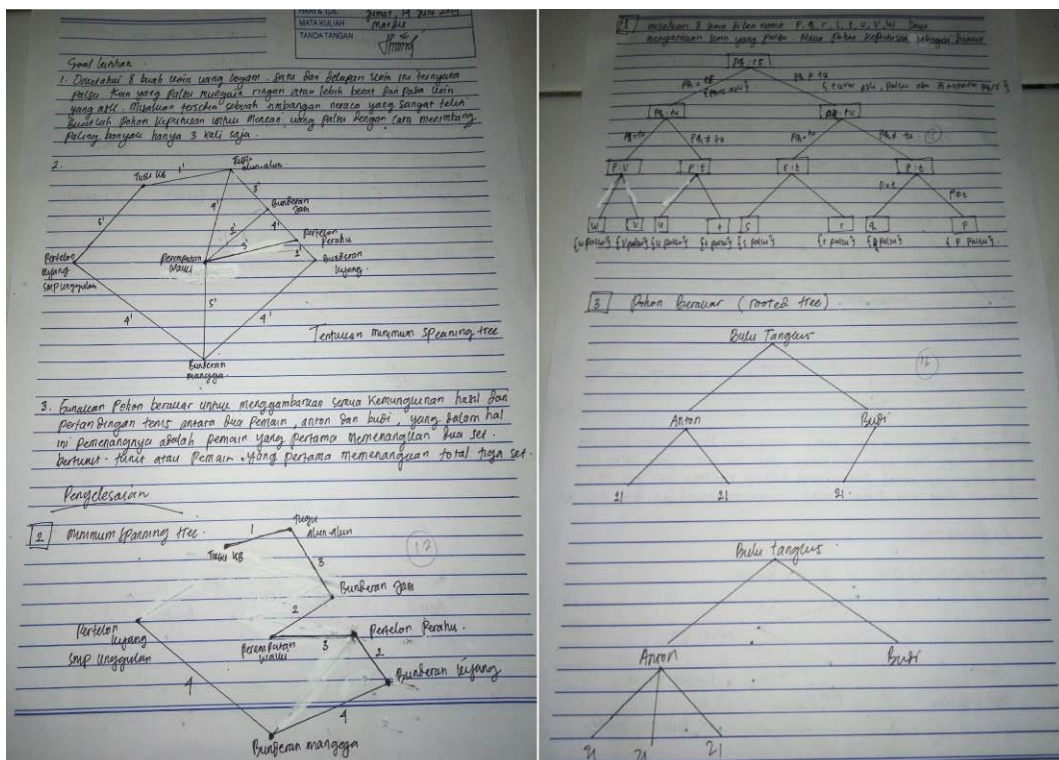 Jumat, 14 Juni
MATA KULIAH Matdis
TANDA TANGAN
Soal latihan.
1. Diketahui 8 buah koin uang logam. Satu dari delapan koin ini ternyata
palsu. Koin yang palsu mungkin ringan atau lebih berat dari pada koin
yang asli. Misalkan tersedia sebuah timbangan neraca yang sangat teliti
Buatlah pohon keputusan untuk mencari uang palsu dengan cara menimbang
paling banyak hanya 3 kali saja.
2.
Tugu KB
1'
Tugu alun-alun.
5'
4'
3'
Bunderan Jam
2'
4'
Pertelon Perahu
3'
2'
Pertelon kujang SMP Unggulan
Perempatan wauki
Bunderan kujang.
5'
4'
4'
Bunderan mangga.
Tentukan minimum spanning tree
3. Gunakan Pohon berakar untuk menggambarkan semua kemungkinan hasil dari
pertandingan tenis antara dua pemain, anton dan budi, yang dalam hal
ini pemenangnya adalah pemain yang pertama memenangkan dua set.
berturut-turut atau pemain yang pertama memenangkan total tiga set.
Penyelesaian
2 minimum spanning tree.
Tugu KB
1
Tugu alun-alun
12
3
Bunderan Jam
2
Perempatan wauki
3
Pertelon Perahu.
2
Bunderan kujang
Pertelon kujang
SMP Unggulan
4
4
Bunderan mangega
1 misalkan 8 koin diberi nama P, q, r, s, t, u, v, w. Daun
menyatakan koin yang palsu. Maka pohon keputusan sebagai berikut
Pq : rs
Pq = rs
Pq ≠ rs
Pq : tu
Pq : tu
Pq = tu
Pq ≠ tu
Pq = tu
Pq ≠ tu
P:V
P:t
s:t
P:t
P≠t
w v u t s r q P
{w palsu} {v palsu} {u palsu} {t palsu} {s palsu} {r palsu} {q palsu} {P palsu}.
3 Pohon Berakar (rooted tree).
Bulu Tangkis
16
Anton
Budi
21
21
21.
Bulu tangkis
Anton
Budi
21
21
21